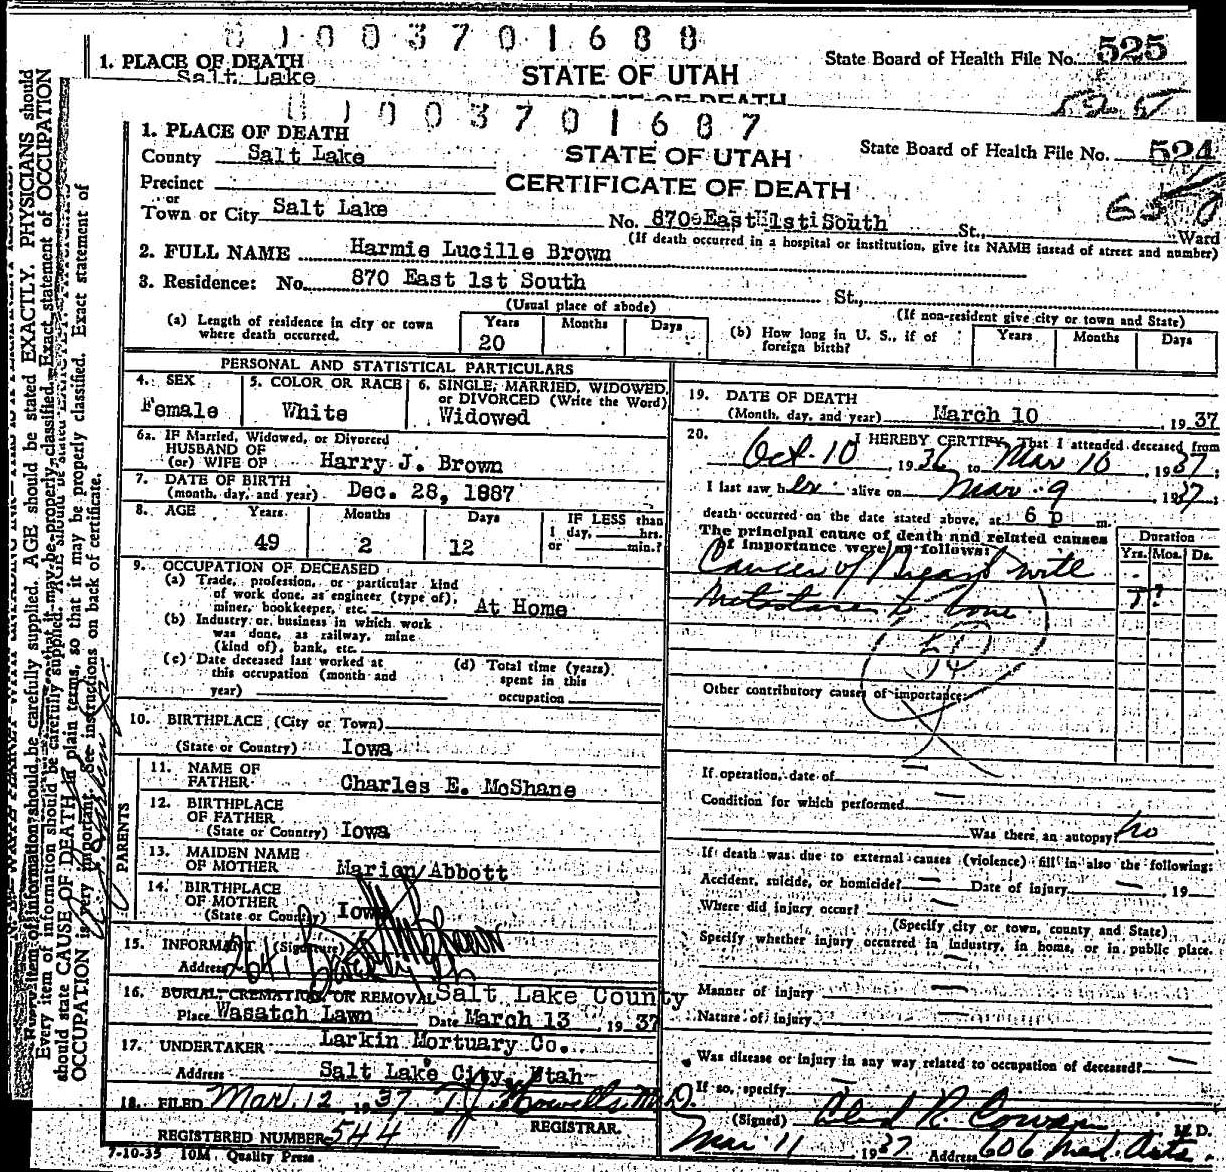 0 1 0 0 3 7 0 1 6 8 8
1. PLACE OF DEATH
State Board of Health File No. 525
Salt Lake
STATE OF UTAH
525
0 1 0 0 3 7 0 1 6 8 7
1. PLACE OF DEATH
STATE OF UTAH
State Board of Health File No. 524
County Salt Lake
CERTIFICATE OF DEATH
Precinct
or
Town or City Salt Lake
No. 870 East 1st South St., Ward
(If death occurred in a hospital or institution, give its NAME instead of street and number)
2. FULL NAME Harmie Lucille Brown
3. Residence: No. 870 East 1st South St.,
(Usual place of abode)
(If non-resident give city or town and State)
(a) Length of residence in city or town where death occurred.
Years Months Days
20
(b) How long in U. S., if of foreign birth?
Years Months Days
PERSONAL AND STATISTICAL PARTICULARS
4. SEX
Female
5. COLOR OR RACE
White
6. SINGLE, MARRIED, WIDOWED, or DIVORCED (Write the Word)
Widowed
6a. IF Married, Widowed, or Divorced
HUSBAND OF
(or) WIFE OF Harry J. Brown
7. DATE OF BIRTH
(month, day, and year) Dec. 28, 1887
8. AGE Years Months Days
IF LESS than
1 day, hrs.
or min.?
49 2 12
9. OCCUPATION OF DECEASED
(a) Trade, profession, or particular kind
of work done, as engineer (type of),
miner, bookkeeper, etc. At Home
(b) Industry or business in which work
was done, as railway, mine
(kind of), bank, etc.
(c) Date deceased last worked at
this occupation (month and
year)
(d) Total time (years)
spent in this
occupation
10. BIRTHPLACE (City or Town)
(State or Country) Iowa
PARENTS
11. NAME OF
FATHER Charles E. McShane
12. BIRTHPLACE
OF FATHER
(State or Country) Iowa
13. MAIDEN NAME
OF MOTHER Marion Abbott
14. BIRTHPLACE
OF MOTHER
(State or Country) Iowa
15. INFORMANT (Signature)
Address
16. BURIAL, CREMATION, OR REMOVAL Salt Lake County
Place Wasatch Lawn Date March 13, 1937
17. UNDERTAKER Larkin Mortuary Co.
Address Salt Lake City, Utah
18. FILED Mar. 12 1937
REGISTRAR.
REGISTERED NUMBER 544
7-10-35 10M Quality Press
19. DATE OF DEATH
(Month, day, and year) March 10, 1937
20. I HEREBY CERTIFY, That I attended deceased from
Oct. 10, 1936 to Mar 10, 1937
I last saw her alive on Mar. 9 1937
death occurred on the date stated above, at 6 p m.
The principal cause of death and related causes
of importance were as follows:
Duration
Yrs. Mos. Ds.
Cancer of Breast with
Metastases to bone
50
Other contributory causes of importance:
If operation, date of
Condition for which performed
Was there an autopsy? No
If death was due to external causes (violence) fill in also the following:
Accident, suicide, or homicide? Date of injury , 19
Where did injury occur?
(Specify city or town, county and State)
Specify whether injury occurred in industry, in home, or in public place.
Manner of injury
Nature of injury
Was disease or injury in any way related to occupation of deceased?
If so, specify
(Signed) R. Cowan M. D.
Mar 11 1937 Address 606 Med. Arts
Every item of information should be carefully supplied. AGE should be stated EXACTLY. PHYSICIANS should
should state CAUSE OF DEATH in plain terms, so that it may be properly classified. Exact statement of
OCCUPATION is very important. See instructions on back of certificate.